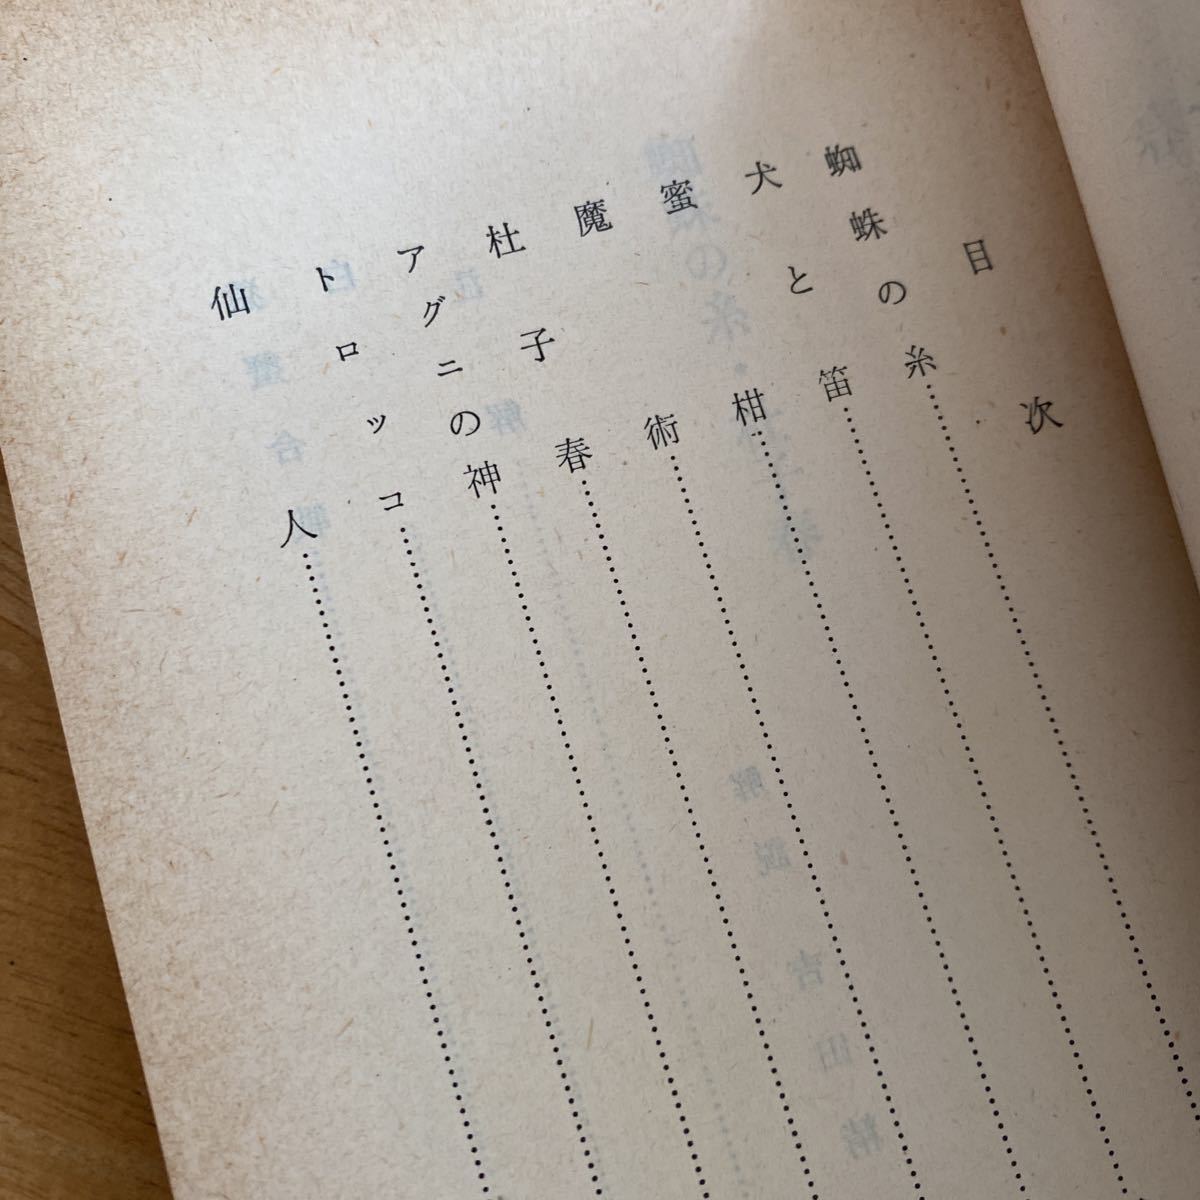 目次
蜘蛛の糸
犬と笛
蜜柑
魔術
杜子春
アグニの神
トロッコ
仙人